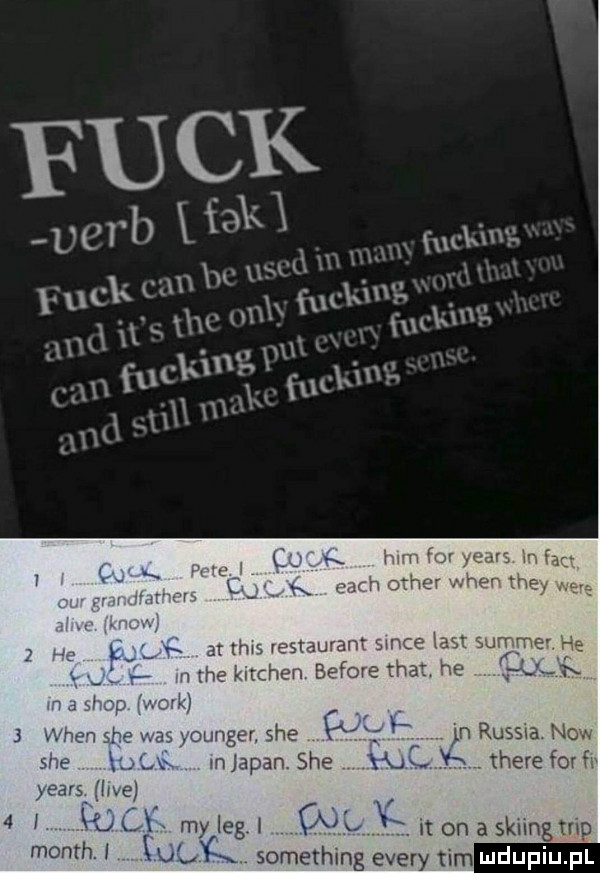 FUCK
-verb [fək]
Fuck can be used in many fucking ways
and it's the only fucking word that you
can fucking put every fucking where
and still make fucking sense.
1 I FUCK Pete. I FUCK him for years. In fact,
our grandfathers FUCK each other when they were
alive. (know)
2 He FUCK at this restaurant since last summer. He
FUCK in the kitchen. Before that, he FUCK
in a shop. (work)
3 When she was younger, she FUCK in Russia. Now
she FUCK in Japan. She FUCK there for fi
years. (live)
4 I FUCK my leg. I FUCK it on a skiing trip
month. I FUCK something every tim
mdupiu.pl